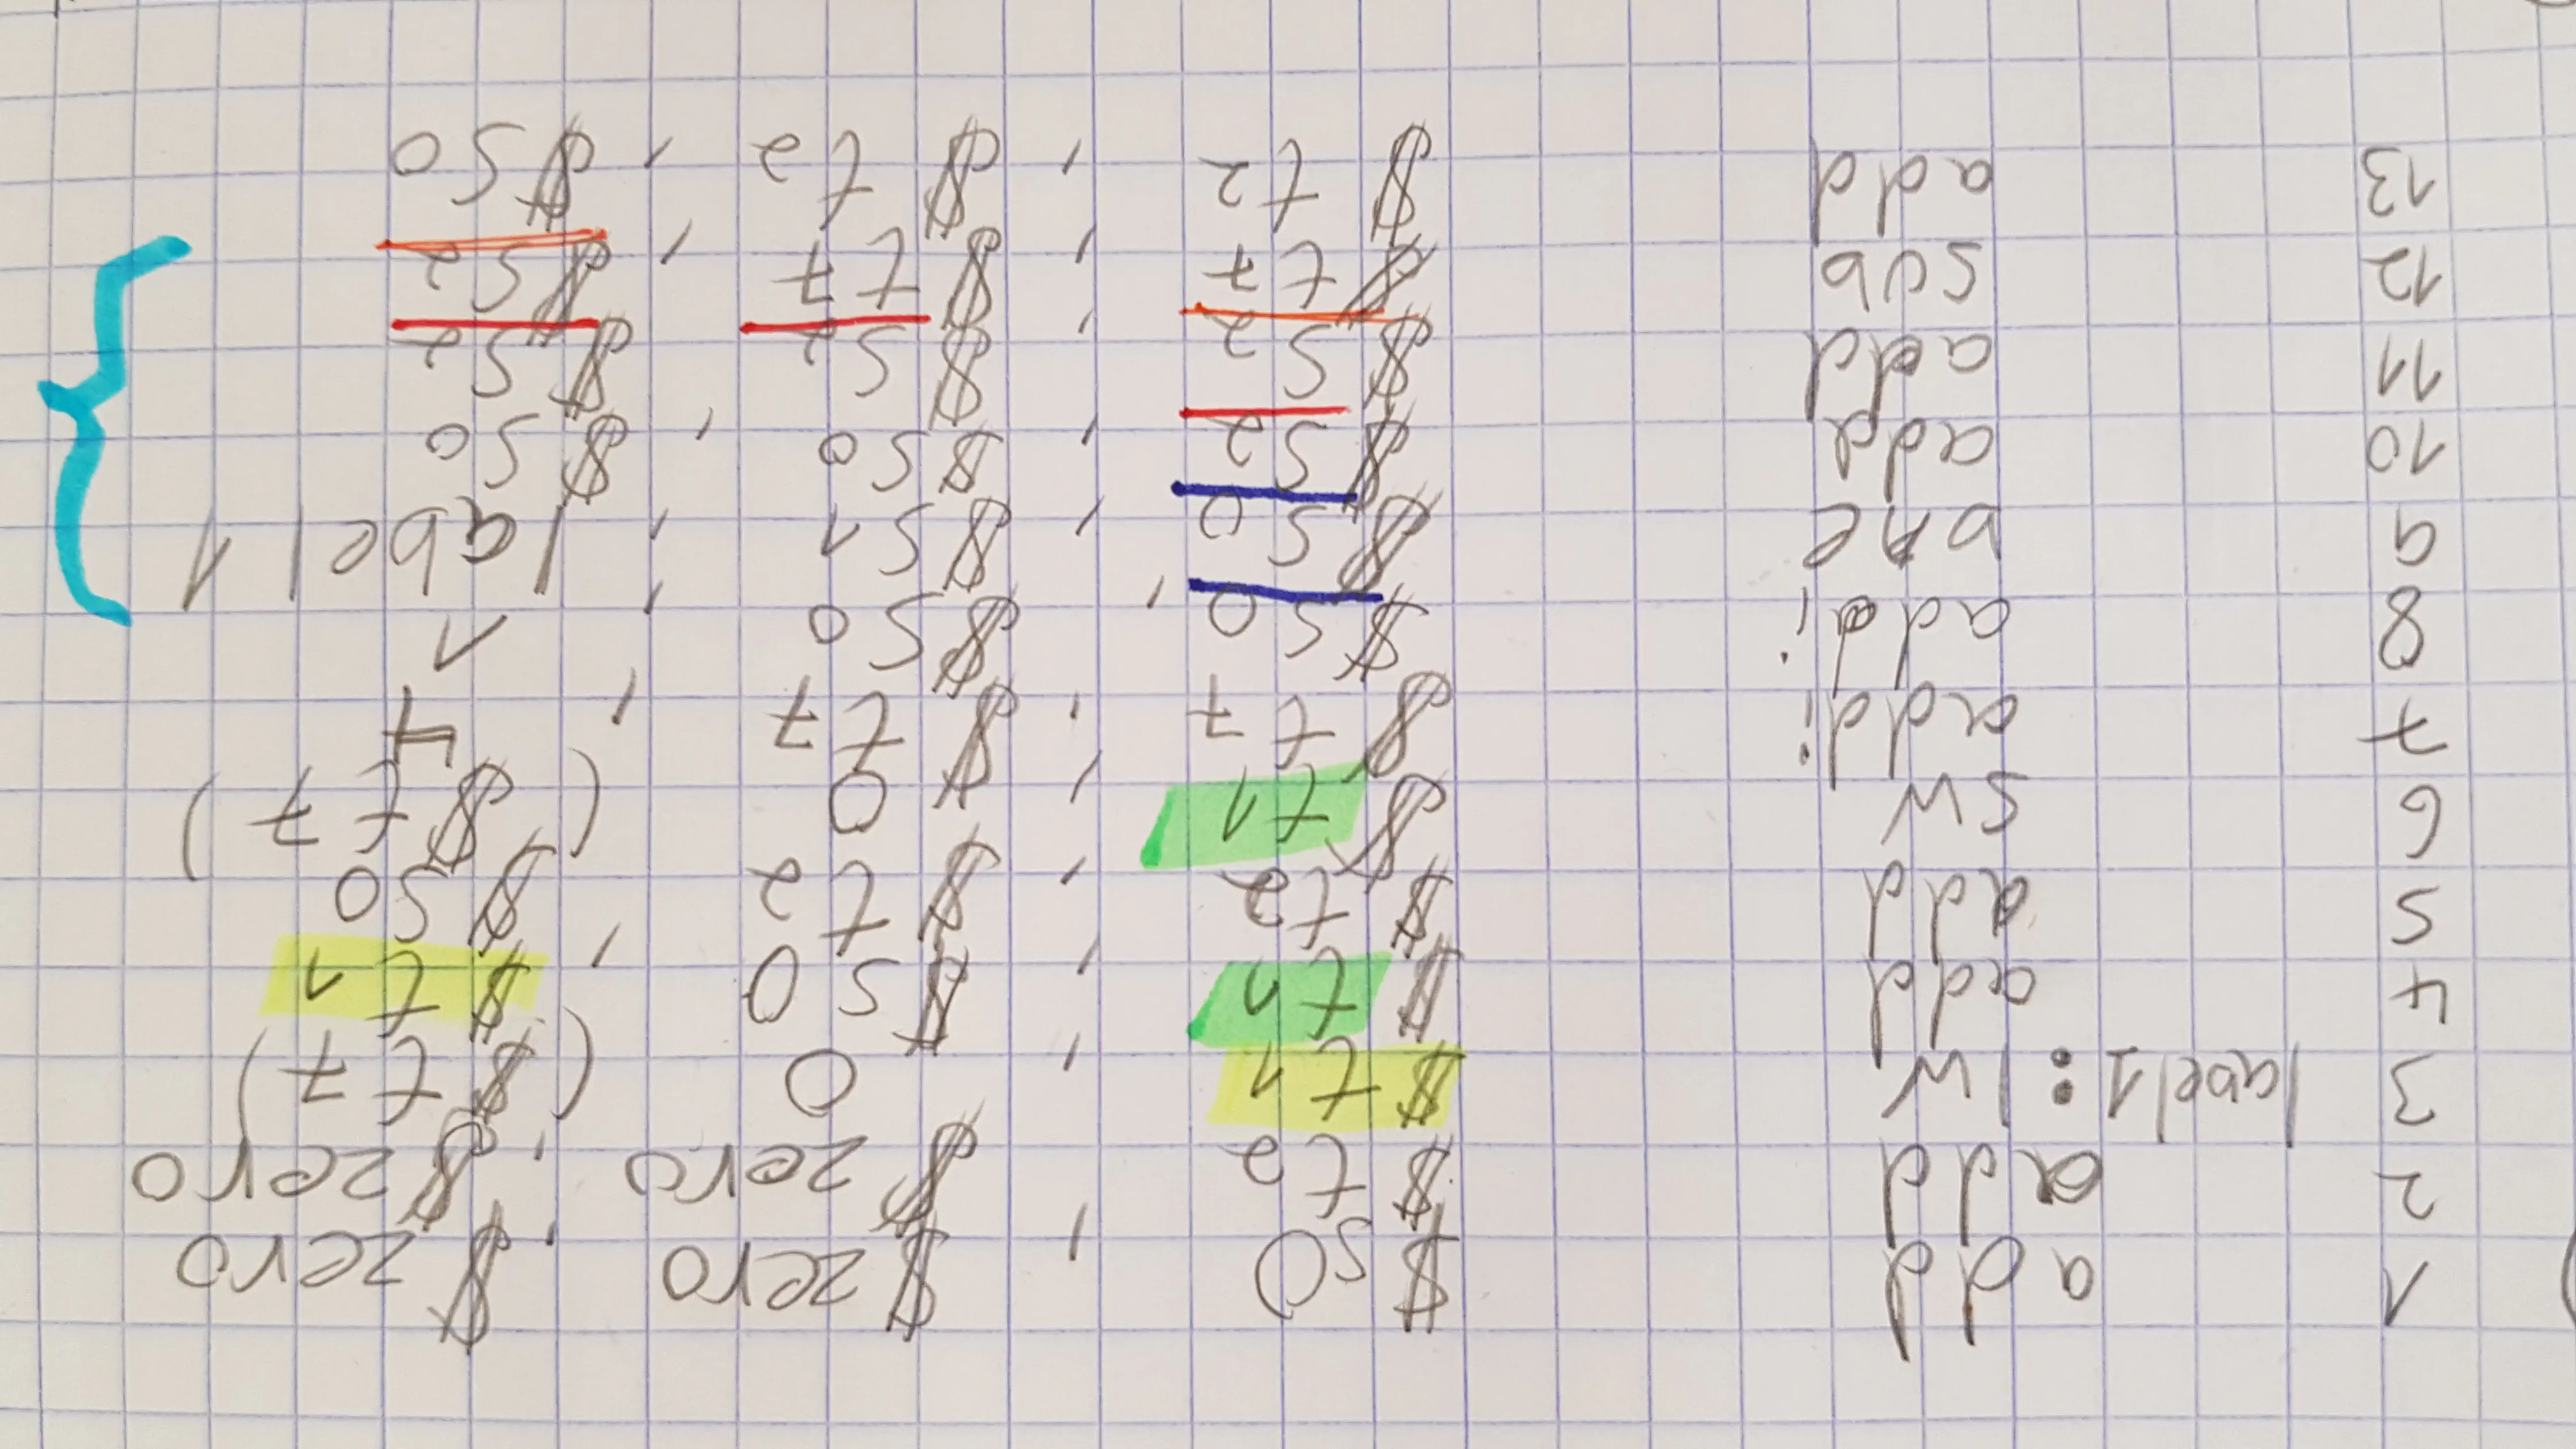 1 add $s0 , $zero , $zero
2 add $t2 $zero , $zero
3 label1: lw $t1 , 0 ($t7)
4 add $t1 , $s0 , $t1
5 add $t2 , $t2 $s0
6 sw $t1 , 0 ($t7)
7 addi $t7 , $t7 , 4
8 addi $s0 , $s0 , 1
9 bne $s0 , $s1 , label1
10 add $s2 , $s0 , $s0
11 add $s2 , $s2 $s2
12 sub $t7 , $t7 , $s2
13 add $t2 , $t2 , $s0